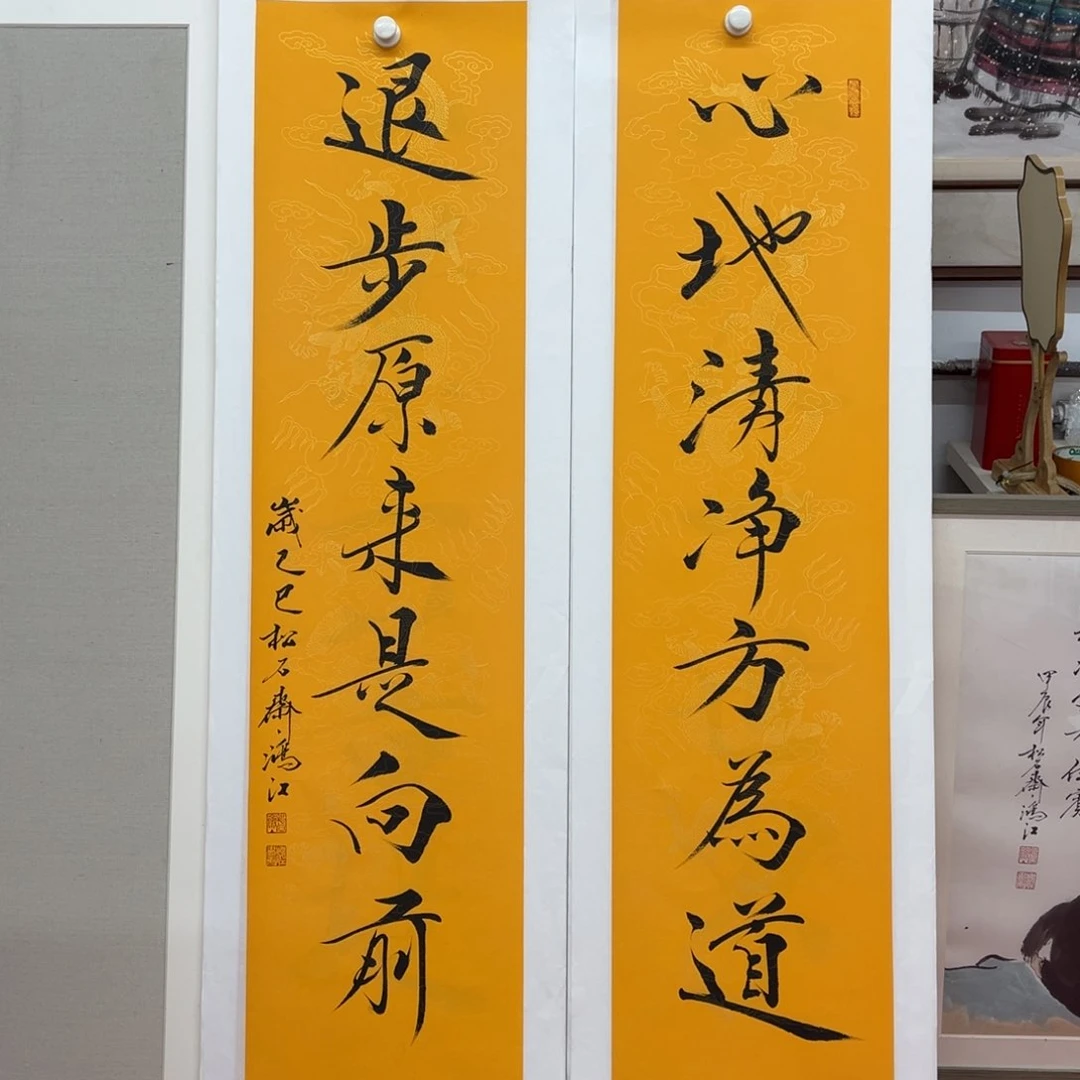 心地清净方為道
退步原来是向前
歲乙巳松石齋鴻江
甲辰年松石齋鴻江